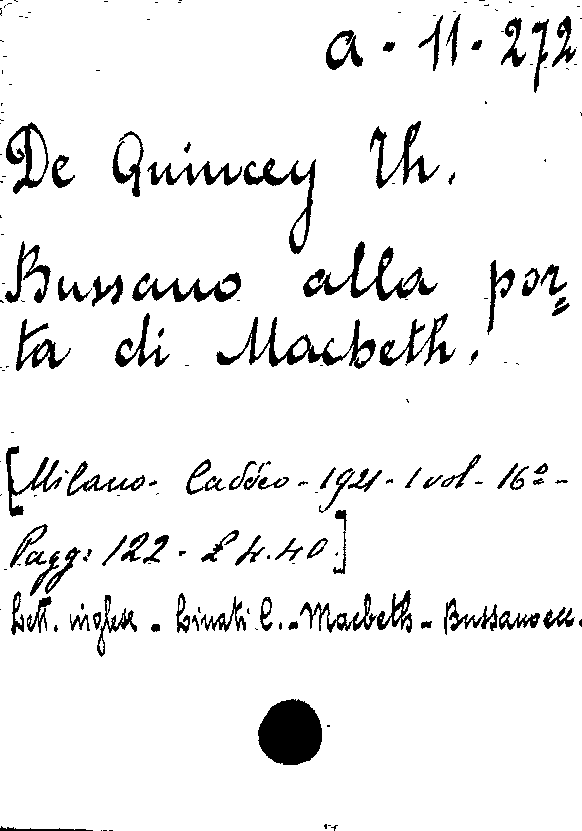 a - 11 - 272
De Quincey Th.
Bussano alla por=
ta di Macbeth.
[Milano - Caddeo - 1921 - 1 vol - 16º -
Pagg: 122 - £ 4.40.]
Lett. inglese - Linati C. - Macbeth - Bussano ecc.